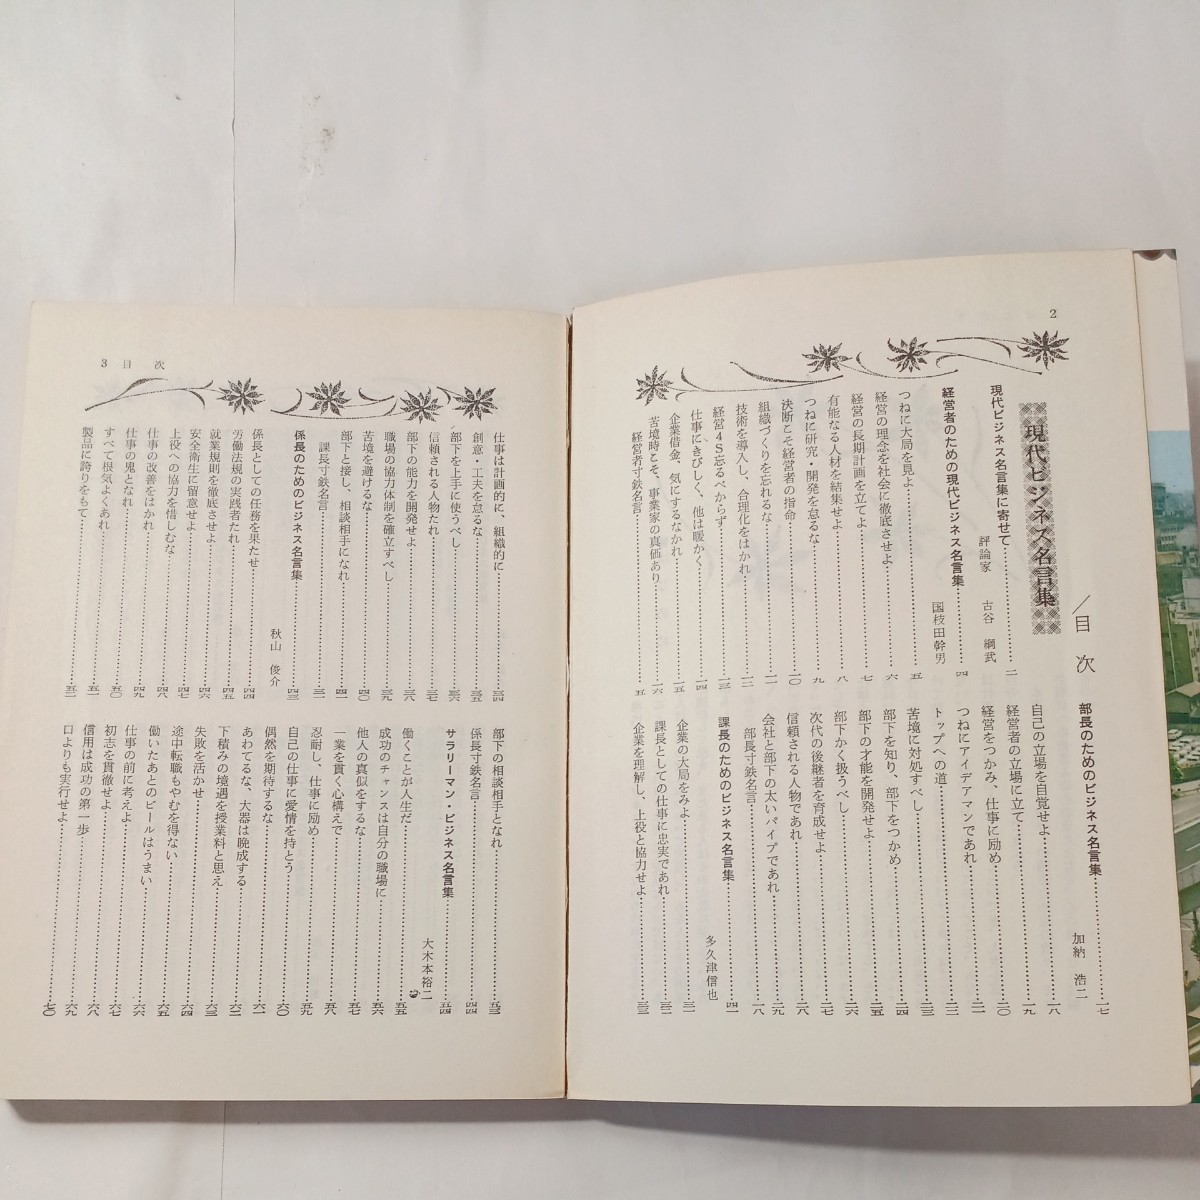 2
現代ビジネス名言集
／目次
現代ビジネス名言集に寄せて…………二
評論家　古谷　綱武
経営者のための現代ビジネス名言集…………四
国枝田幹男
つねに大局を見よ…………五
経営の理念を社会に徹底させよ…………六
経営の長期計画を立てよ…………七
有能なる人材を結集せよ…………八
つねに研究・開発を怠るな…………九
決断こそ経営者の指命…………一〇
組織づくりを忘れるな…………一一
技術を導入し、合理化をはかれ…………一二
経営４Ｓ忘るべからず…………一三
仕事にきびしく、他は暖かく…………一四
企業借金、気にするなかれ…………一五
苦境時こそ、事業家の真価あり…………一六
経営者寸鉄名言…………五
部長のためのビジネス名言集…………一七
加納　浩二
自己の立場を自覚せよ…………一八
経営者の立場に立て…………一九
経営をつかみ、仕事に励め…………二〇
つねにアイデアマンであれ…………二一
トップへの道…………二二
苦境に対処すべし…………二三
部下を知り、部下をつかめ…………二四
部下の才能を開発せよ…………二五
部下かく扱うべし…………二六
次代の後継者を育成せよ…………二七
信頼される人物であれ…………二八
会社と部下の太いパイプであれ…………二九
部長寸鉄名言…………一八
課長のためのビジネス名言集…………
多久津信也
企業の大局をみよ…………三一
課長としての仕事に忠実であれ…………三二
企業を理解し、上役と協力せよ…………三三
3　目　次
仕事は計画的に、組織的に…………三四
創意・工夫を怠るな…………三五
部下を上手に使うべし…………三六
信頼される人物たれ…………三七
部下の能力を開発せよ…………三八
職場の協力体制を確立すべし…………三九
苦境を避けるな…………四〇
部下と接し、相談相手になれ…………四一
課長寸鉄名言…………三一
係長のためのビジネス名言集…………四三
秋山　俊介
係長としての任務を果たせ…………四四
労働法規の実践者たれ…………四五
就業規則を徹底させよ…………四六
安全衛生に留意せよ…………四七
上役への協力を惜しむな…………四八
仕事の改善をはかれ…………四九
仕事の鬼となれ…………五〇
すべて根気よくあれ…………五一
製品に誇りをもて…………五二
部下の相談相手となれ…………五三
係長寸鉄名言…………四四
サラリーマン・ビジネス名言集…………五四
大木本裕二
働くことが人生だ…………五五
成功のチャンスは自分の職場に…………五六
他人の真似をするな…………五七
一業を貫く心構えで…………五八
忍耐し、仕事に励め…………五九
自己の仕事に愛情を持とう…………六〇
偶然を期待するな…………六一
あわてるな、大器は晩成する…………六二
下積みの境遇を授業料と思え…………六三
失敗を活かせ…………六四
途中転職もやむを得ない…………六五
働いたあとのビールはうまい…………六六
仕事の前に考えよ…………六七
初志を貫徹せよ…………六八
信用は成功の第一歩…………六九
口よりも実行せよ…………七〇